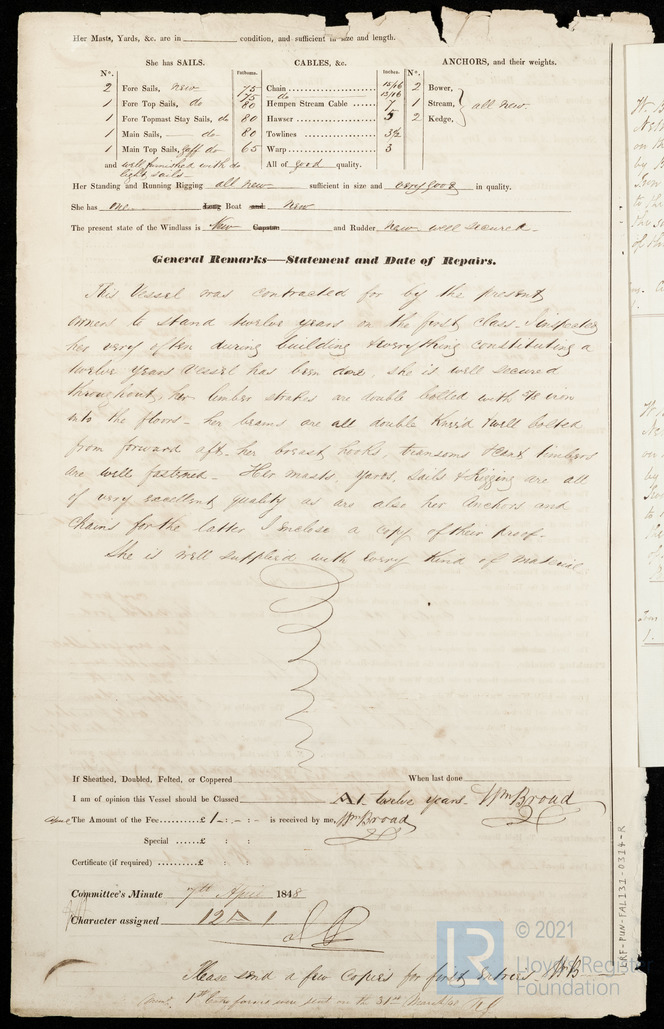 Her Masts, Yards, &c. are in condition, and sufficient in size and length.
She has SAILS. CABLES, &c. ANCHORS, and their weights.
N°. Fathoms. Inches. N°.
2 Fore Sails, new 75 Chain 15/16 2 Bower,
175 do 13/16
1 Fore Top Sails, do 80 Hempen Stream Cable 7 1 Stream, all new.
1 Fore Topmast Stay Sails, do 80 Hawser 5 2 Kedge,
1 Main Sails, do 80 Towlines 3½
1 Main Top Sails, gaff do 65 Warp 3
and well furnished with do All of good quality.
light sails
Her Standing and Running Rigging all new sufficient in size and very good in quality.
She has one Long Boat and new
The present state of the Windlass is New Capstan and Rudder new well secured.
General Remarks—Statement and Date of Repairs.
This Vessel was contracted for by the present
owners to stand twelve years on the first class. I inspected
her very often during building & everything constituting a
twelve years Vessel has been done, she is well secured
throughout, her limber strakes are double bolted with 7/8 iron
into the floors - her beams are all double Knee'd & well bolted
from forward aft. her breast hooks, transoms & cant timbers
are well fastened - Her masts, yards, sails & Rigging are all
of very excellent quality as are also her Anchors and
Chains for the latter I enclose a copy of their proof.
She is well supplied with every kind of material.
If Sheathed, Doubled, Felted, or Coppered When last done
I am of opinion this Vessel should be Classed A1 twelve years. Wm Broad
The Amount of the Fee £ 1 - : - : - is received by me, Wm Broad
Special £ :
Certificate (if required) £ :
Committee's Minute 7th April 1848
Character assigned 12 A 1
Please send a few Copies for first Entries WB
1st Entry forms were sent on the 31st March/48
LRF-PUN-FAL131-0314-R
LR
© 2021
Lloyd's Register
Foundation